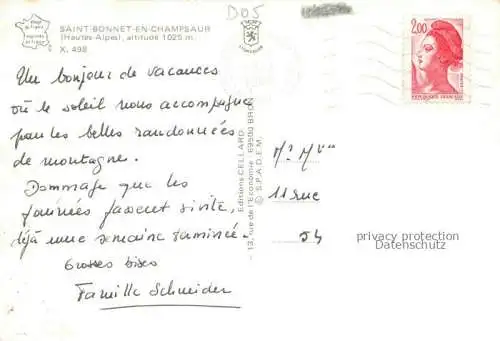 D05
SAINT-BONNET-EN-CHAMPSAUR
(Hautes-Alpes), altitude 1025 m.
X. 498
2,00
Un bonjour de vacances
où le soleil nous accompagne
pour les belles randonnées
de montagne.
Dommage que les
journées passent si vite,
déjà une semaine terminée.
Grosses bises
Famille Schneider
Editions CELLARD
13, rue de l'Economie 69500 BRON
© S.P.A.D.E.M.
Mr Mme
11 rue
54
privacy protection
Datenschutz